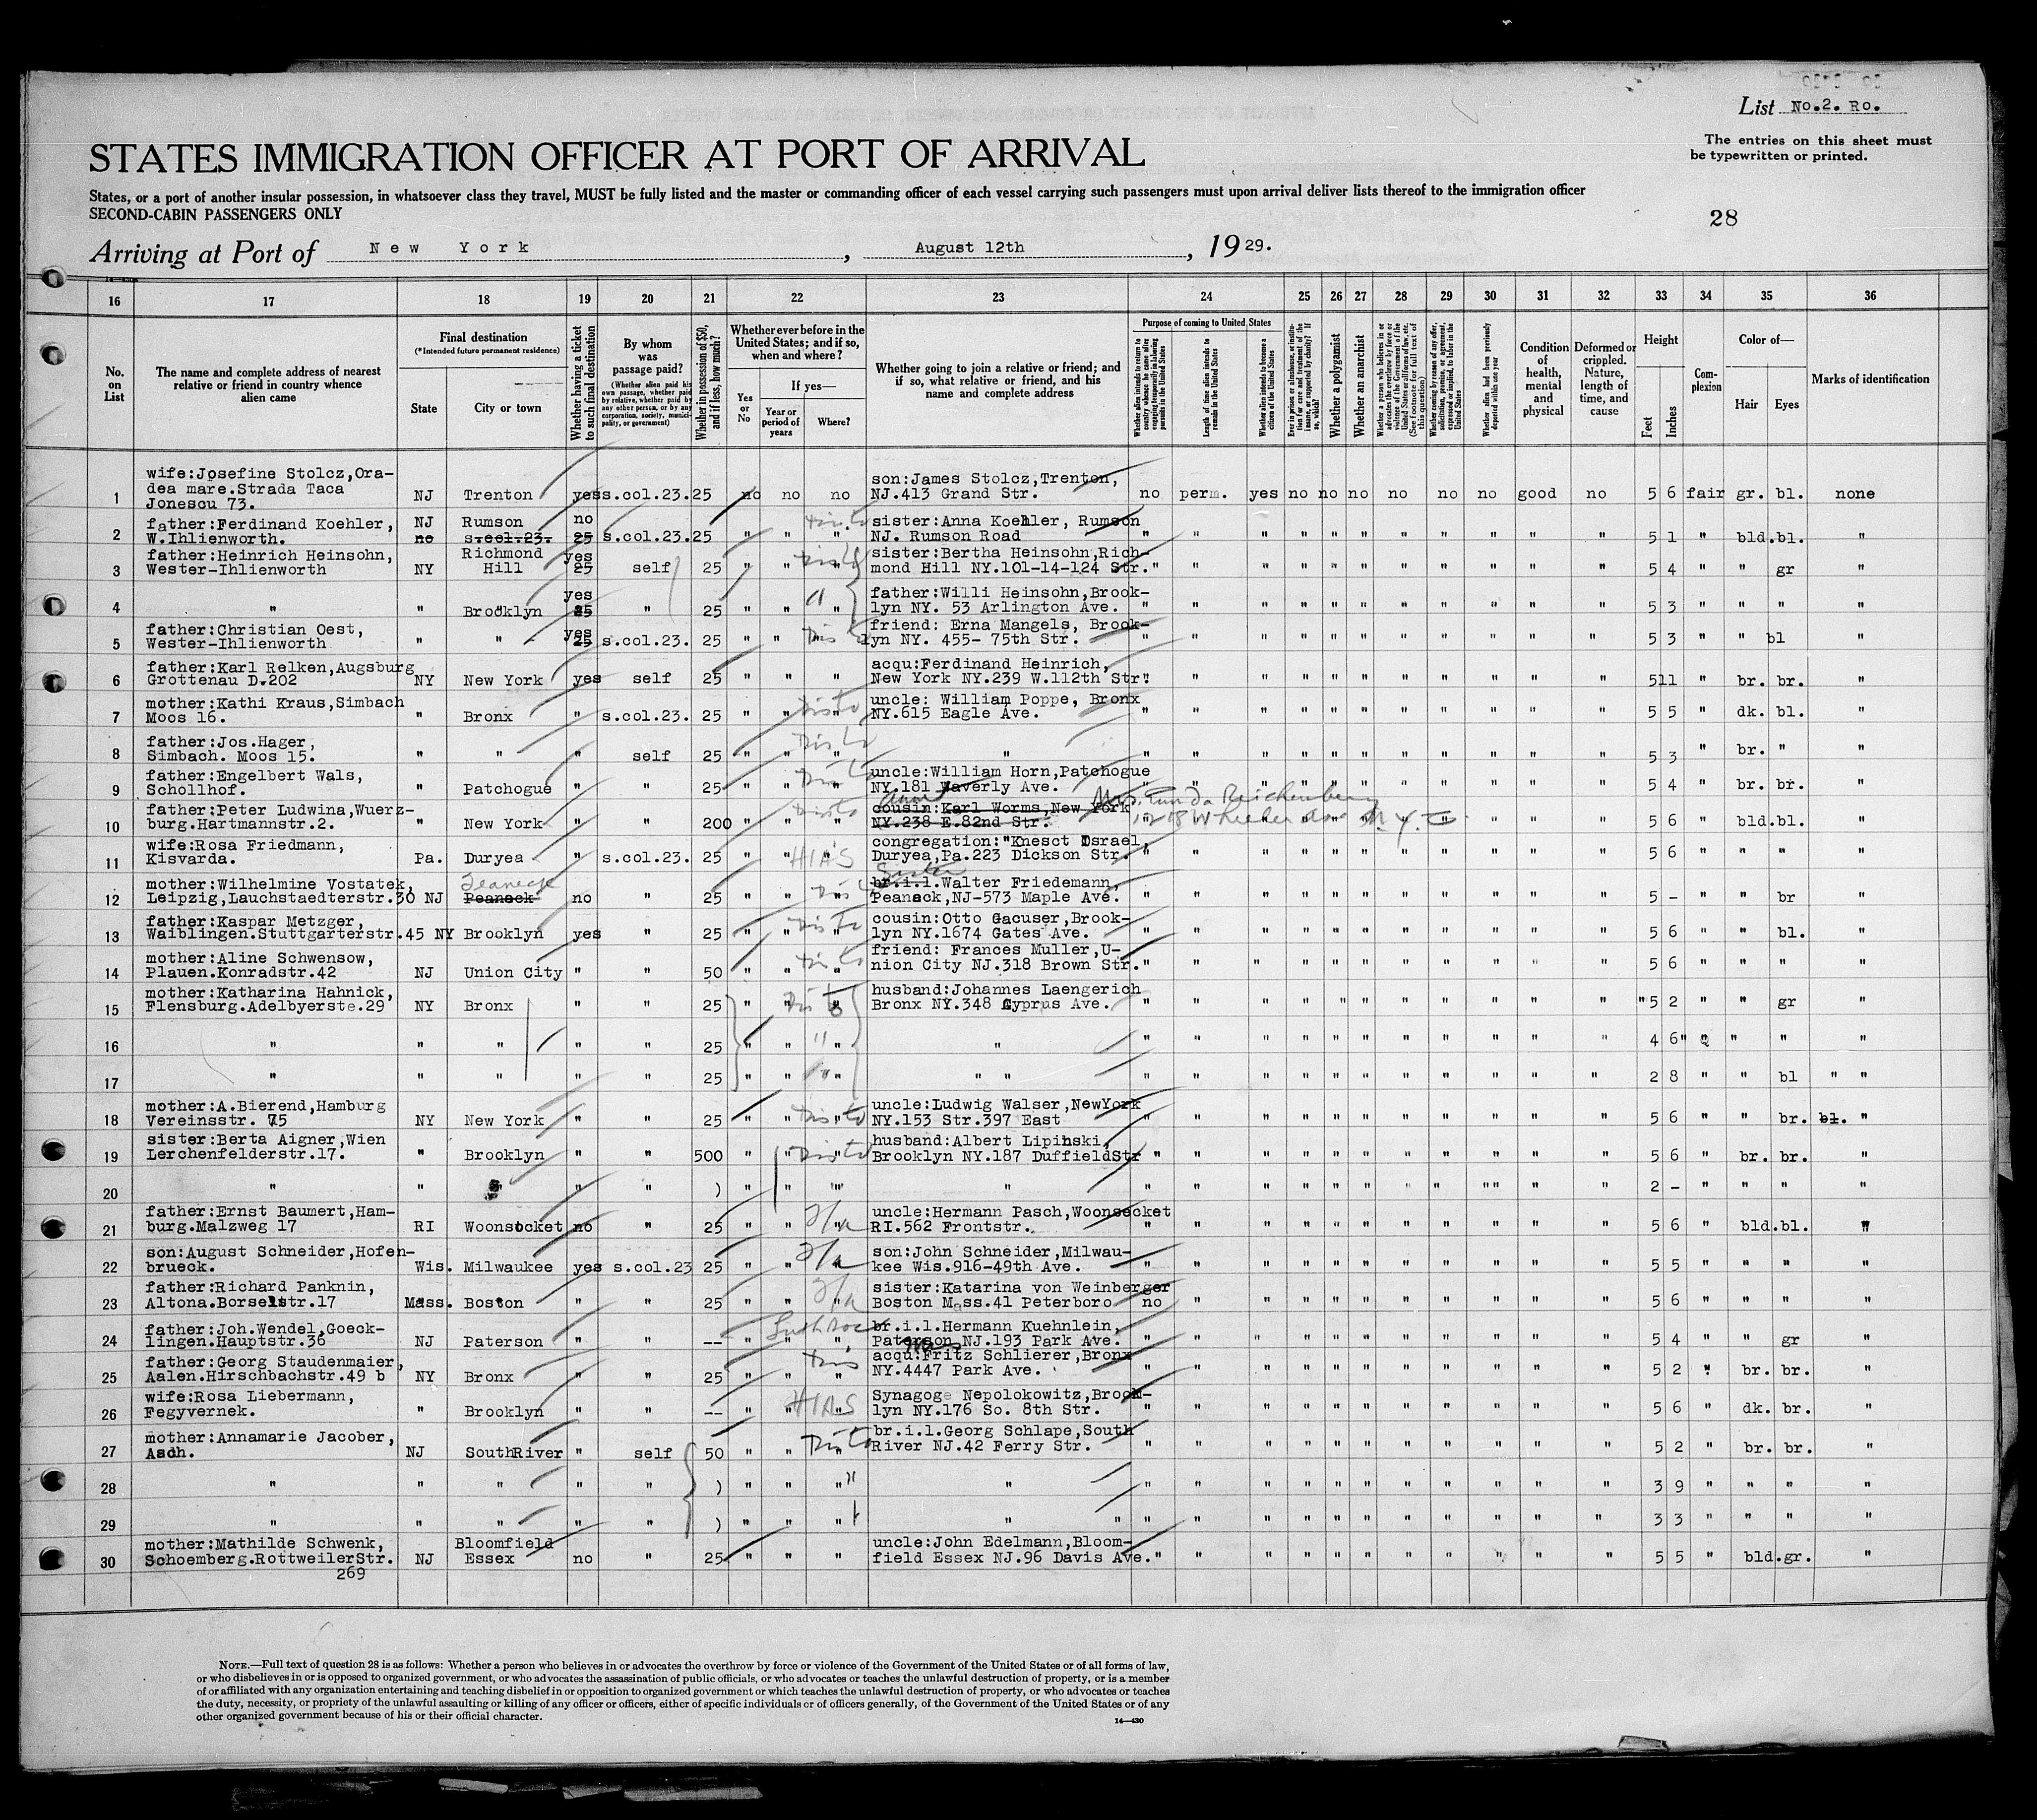 List No.2. Ro.
The entries on this sheet must
be typewritten or printed.
STATES IMMIGRATION OFFICER AT PORT OF ARRIVAL
States, or a port of another insular possession, in whatsoever class they travel, MUST be fully listed and the master or commanding officer of each vessel carrying such passengers must upon arrival deliver lists thereof to the immigration officer
SECOND-CABIN PASSENGERS ONLY
28
Arriving at Port of New York, August 12th, 1929.
16 17 18 19 20 21 22 23 24 25 26 27 28 29 30 31 32 33 34 35 36
No. on List
The name and complete address of nearest relative or friend in country whence alien came
Final destination
(*Intended future permanent residence)
State
City or town
Whether having a ticket to such final destination
By whom was passage paid?
(Whether alien paid his own passage, whether paid by relative, whether paid by any other person, or by any corporation, society, municipality, or government)
Whether in possession of $50, and if less, how much?
Whether ever before in the United States; and if so, when and where?
Yes or No
If yes—
Year or period of years
Where?
Whether going to join a relative or friend; and if so, what relative or friend, and his name and complete address
Purpose of coming to United States
Whether alien intends to return to country whence he came after engaging temporarily in laboring pursuits in the United States
Length of time alien intends to remain in the United States
Whether alien intends to become a citizen of the United States
Ever in prison or almshouse, or institution for care and treatment of the insane, or supported by charity? If so, which?
Whether a polygamist
Whether an anarchist
Whether a person who believes in or advocates the overthrow by force or violence of the Government of the United States or all forms of law, etc. (See footnote for full text of this question)
Whether coming by reason of any offer, solicitation, promise, or agreement, expressed or implied, to labor in the United States
Whether alien had been previously deported within one year
Condition of health, mental and physical
Deformed or crippled. Nature, length of time, and cause
Height
Feet
Inches
Complexion
Color of—
Hair
Eyes
Marks of identification
1 wife:Josefine Stolcz,Ora-
dea mare.Strada Taca
Jonescu 73. NJ Trenton yes s.col.23. 25 no no no son:James Stolcz,Trenton,
NJ.413 Grand Str. no perm. yes no no no no no no good no 5 6 fair gr. bl. none
2 father:Ferdinand Koehler,
W.Ihlienworth. NJ Rumson no
no s.col.23. 25 s.col.23.25 " " " sister:Anna Koehler, Rumson
NJ. Rumson Road " " " " " " " " " " " 5 1 " bld. bl. "
3 father:Heinrich Heinsohn,
Wester-Ihlienworth NY Richmond
Hill yes
25 self 25 " " " sister:Bertha Heinsohn,Rich-
mond Hill NY.101-14-124 Str. " " " " " " " " " " " 5 4 " " gr "
4 " " Brooklyn yes
25 " 25 " " " father:Willi Heinsohn,Brook-
lyn NY. 53 Arlington Ave. " " " " " " " " " " " 5 3 " " " "
5 father:Christian Oest,
Wester-Ihlienworth " " yes
25 s.col.23. 25 " " " friend: Erna Mangels, Brook-
lyn NY. 455- 75th Str. " " " " " " " " " " " 5 3 " " bl "
6 father:Karl Relken,Augsburg
Grottenau D.202 NY New York yes self 25 " " " acqu:Ferdinand Heinrich,
New York NY.239 W.112th Str. " " " " " " " " " " " 5 11 " br. br. "
7 mother:Kathi Kraus,Simbach
Moos 16. " Bronx " s.col.23. 25 " " " uncle: William Poppe, Bronx
NY.615 Eagle Ave. " " " " " " " " " " " 5 5 " dk. bl. "
8 father:Jos.Hager,
Simbach. Moos 15. " " " self 25 " " " " " " " " " " " " " " " " 5 3 " br. " "
9 father:Engelbert Wals,
Schollhof. " Patchogue " " 25 " " " uncle:William Horn,Patchogue
NY.181 Waverly Ave. " " " " " " " " " " " 5 4 " br. br. "
10 father:Peter Ludwina,Wuerz-
burg.Hartmannstr.2. " New York " " 200 " " " cousin:Karl Worms,New York
NY.238 E.82nd Str. " " " " " " " " " " " 5 6 " bld. bl. "
11 wife:Rosa Friedmann,
Kisvarda. Pa. Duryea " s.col.23. 25 " " HIAS " congregation:"Knesct Israel,
Duryea,Pa.223 Dickson Str. " " " " " " " " " " " 5 6 " " " "
12 mother:Wilhelmine Vostatek,
Leipzig,Lauchstaedterstr.30 NJ Teaneck
Peaneck no " 25 " " Sister
br.i.l.Walter Friedemann,
Peaneck,NJ-573 Maple Ave. " " " " " " " " " " " 5 - " " br "
13 father:Kaspar Metzger,
Waiblingen.Stuttgarterstr.45 NY Brooklyn yes " 25 " " " cousin:Otto Gacuser,Brook-
lyn NY.1674 Gates Ave. " " " " " " " " " " " 5 6 " " bl. "
14 mother:Aline Schwensow,
Plauen.Konradstr.42 NJ Union City " " 50 " " " friend: Frances Muller,U-
nion City NJ.318 Brown Str. " " " " " " " " " " " 5 6 " " " "
15 mother:Katharina Hahnick,
Flensburg.Adelbyerste.29 NY Bronx " " 25 " " " husband:Johannes Laengerich
Bronx NY.348 Cyprus Ave. " " " " " " " " " " " 5 2 " " gr "
16 " " " " " 25 " " " " " " " " " " " " " " " 4 6 " " " "
17 " " " " " 25 " " " " " " " " " " " " " " " " 2 8 " " bl " "
18 mother:A.Bierend,Hamburg
Vereinsstr. 75 NY New York " " 25 " " " uncle:Ludwig Walser,NewYork
NY.153 Str.397 East " " " " " " " " " " " 5 6 " " br. bl. "
19 sister:Berta Aigner,Wien
Lerchenfelderstr.17. " Brooklyn " " 500 " " " husband:Albert Lipinski,
Brooklyn NY.187 DuffieldStr " " " " " " " " " " " 5 6 " br. br. "
20 " " " " " ) " " " " " " " " " " " " "" " " 2 - " " " "
21 father:Ernst Baumert,Ham-
burg.Malzweg 17 RI Woonsocket no " 25 " " " uncle:Hermann Pasch,Woonsecket
RI.562 Frontstr. " " " " " " " " " " " 5 6 " bld. bl. "
22 son:August Schneider,Hofen-
brueck. Wis. Milwaukee yes s.col.23 25 " " " son:John Schneider,Milwau-
kee Wis.916-49th Ave. " " " " " " " " " " " 5 5 " " " "
23 father:Richard Panknin,
Altona.Borselstr.17 Mass. Boston " " 25 " " sister:Katarina von Weinberger
Boston Mass.41 Peterboro no " " " " " " " " " " 5 6 " " " "
24 father:Joh.Wendel,Goeck-
lingen.Hauptstr.36 NJ Paterson " " -- " " " br.i.l.Hermann Kuehnlein,
Paterson NJ.193 Park Ave. " " " " " " " " " " " 5 4 " " gr "
25 father:Georg Staudenmaier,
Aalen.Hirschbachstr.49 b NY Bronx " " 25 " " " acqu:Fritz Schlierer,Bronx
NY.4447 Park Ave. " " " " " " " " " " " 5 2 " br. br. "
26 wife:Rosa Liebermann,
Fegyvernek. " Brooklyn " " -- " HIAS " Synagoge Nepolokowitz,Brook-
lyn NY.176 So. 8th Str. " " " " " " " " " " " 5 6 " dk. br. "
27 mother:Annamarie Jacober,
Asch. NJ SouthRiver " self 50 " " br.i.l.Georg Schlape,South
River NJ.42 Ferry Str. " " " " " " " " " " " 5 2 " br. br. "
28 " " " " " ) " " " " " " " " " " " " " " " 3 9 " " " "
29 " " " " " ) " " " " " " " " " " " " " " " " 3 3 " " " "
30 mother:Mathilde Schwenk,
Schoemberg.RottweilerStr.
269 NJ Bloomfield
Essex no " 25 " " " uncle:John Edelmann,Bloom-
field Essex NJ.96 Davis Ave. " " " " " " " " " " " 5 5 " bld. gr. "
NOTE.—Full text of question 28 is as follows: Whether a person who believes in or advocates the overthrow by force or violence of the Government of the United States or of all forms of law,
or who disbelieves in or is opposed to organized government, or who advocates the assassination of public officials, or who advocates or teaches the unlawful destruction of property, or is a member
of or affiliated with any organization entertaining and teaching disbelief in or opposition to organized government or which teaches the unlawful destruction of property, or who advocates or teaches
the duty, necessity, or propriety of the unlawful assaulting or killing of any officer or officers, either of specific individuals or of officers generally, of the Government of the United States or of any
other organized government because of his or their official character.
14—430